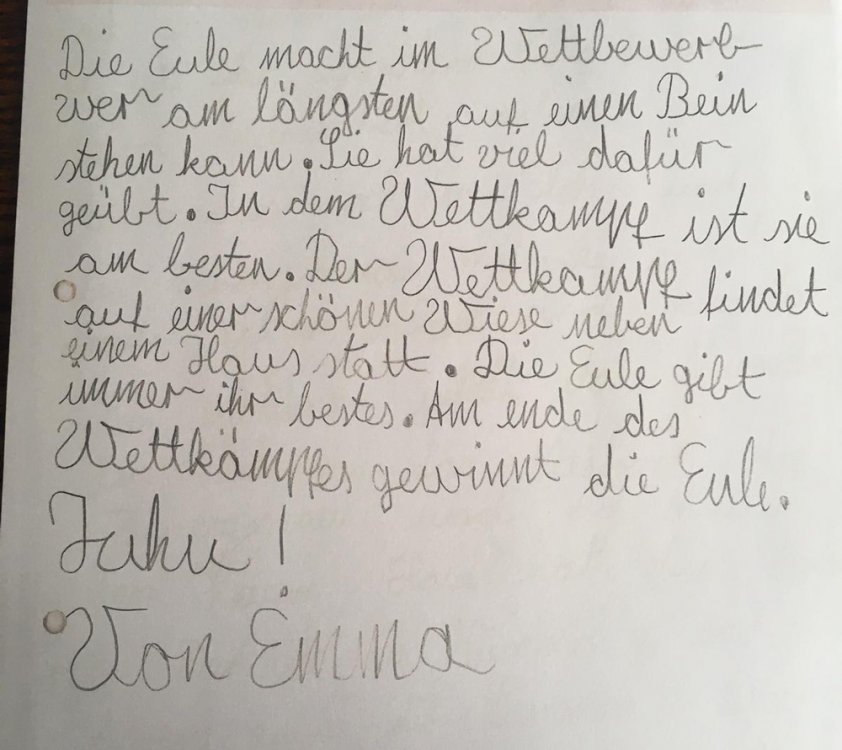 Die Eule macht im Wettbewerb
wer am längsten auf einen Bein
stehen kann. Sie hat viel dafür
geübt. In dem Wettkampf ist sie
am besten. Der Wettkampf findet
auf einer schönen Wiese neben
einem Haus statt. Die Eule gibt
immer ihr bestes. Am ende des
Wettkämpfes gewinnt die Eule.
Juhu!
Von Emma